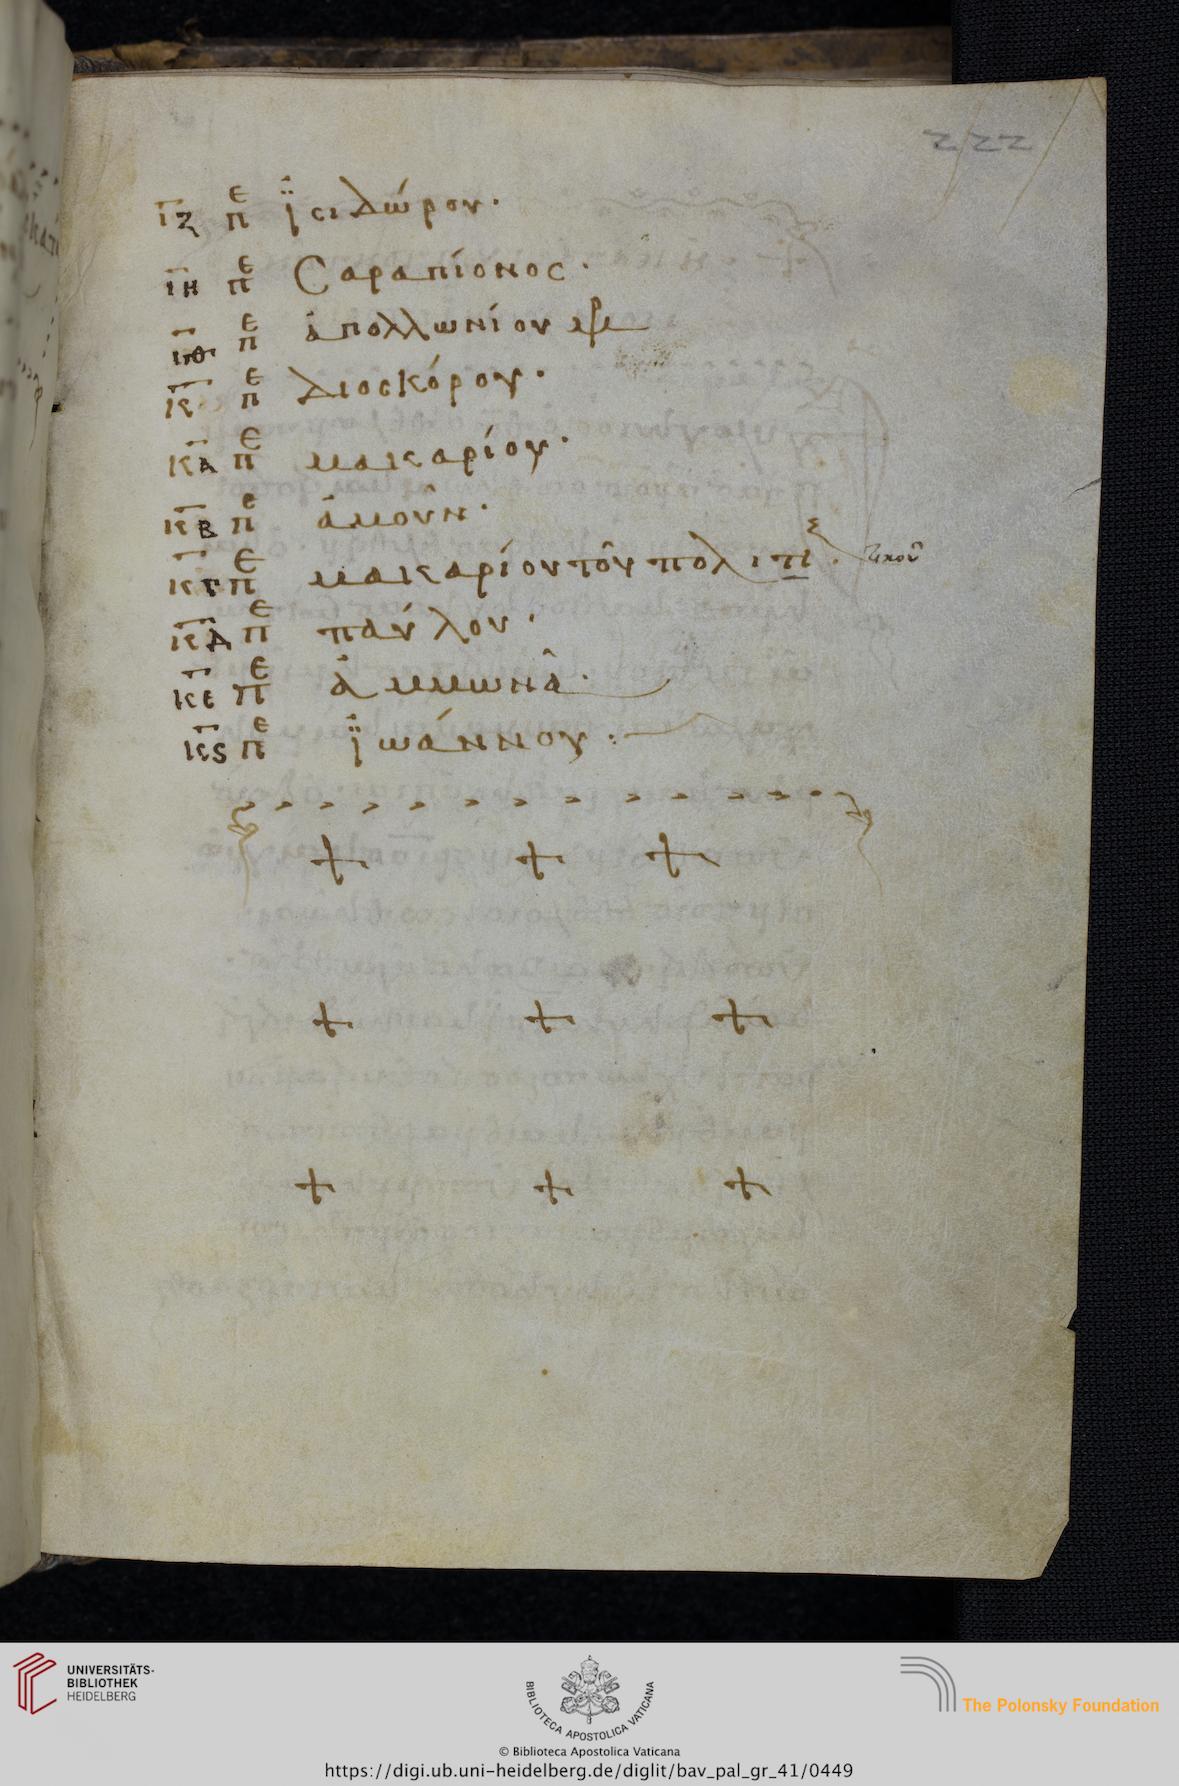 222
ιζ πε ϊσιδώρου·
ιη πε Σαραπίονος·
ιθ πε ἀπολλωνίου
κ πε Διοσκόρου·
κα πε μακαρίου·
κβ πε ἀμοῦν·
κγ πε μακαρίου τοῦ πολιτι · τικοῦ
κδ πε παύλου·
κε πε ἀμμωνᾶ·
κς πε ϊωάννου·
UNIVERSITÄTS-
BIBLIOTHEK
HEIDELBERG
BIBLIOTECA APOSTOLICA VATICANA
The Polonsky Foundation
© Biblioteca Apostolica Vaticana
https://digi.ub.uni-heidelberg.de/diglit/bav_pal_gr_41/0449